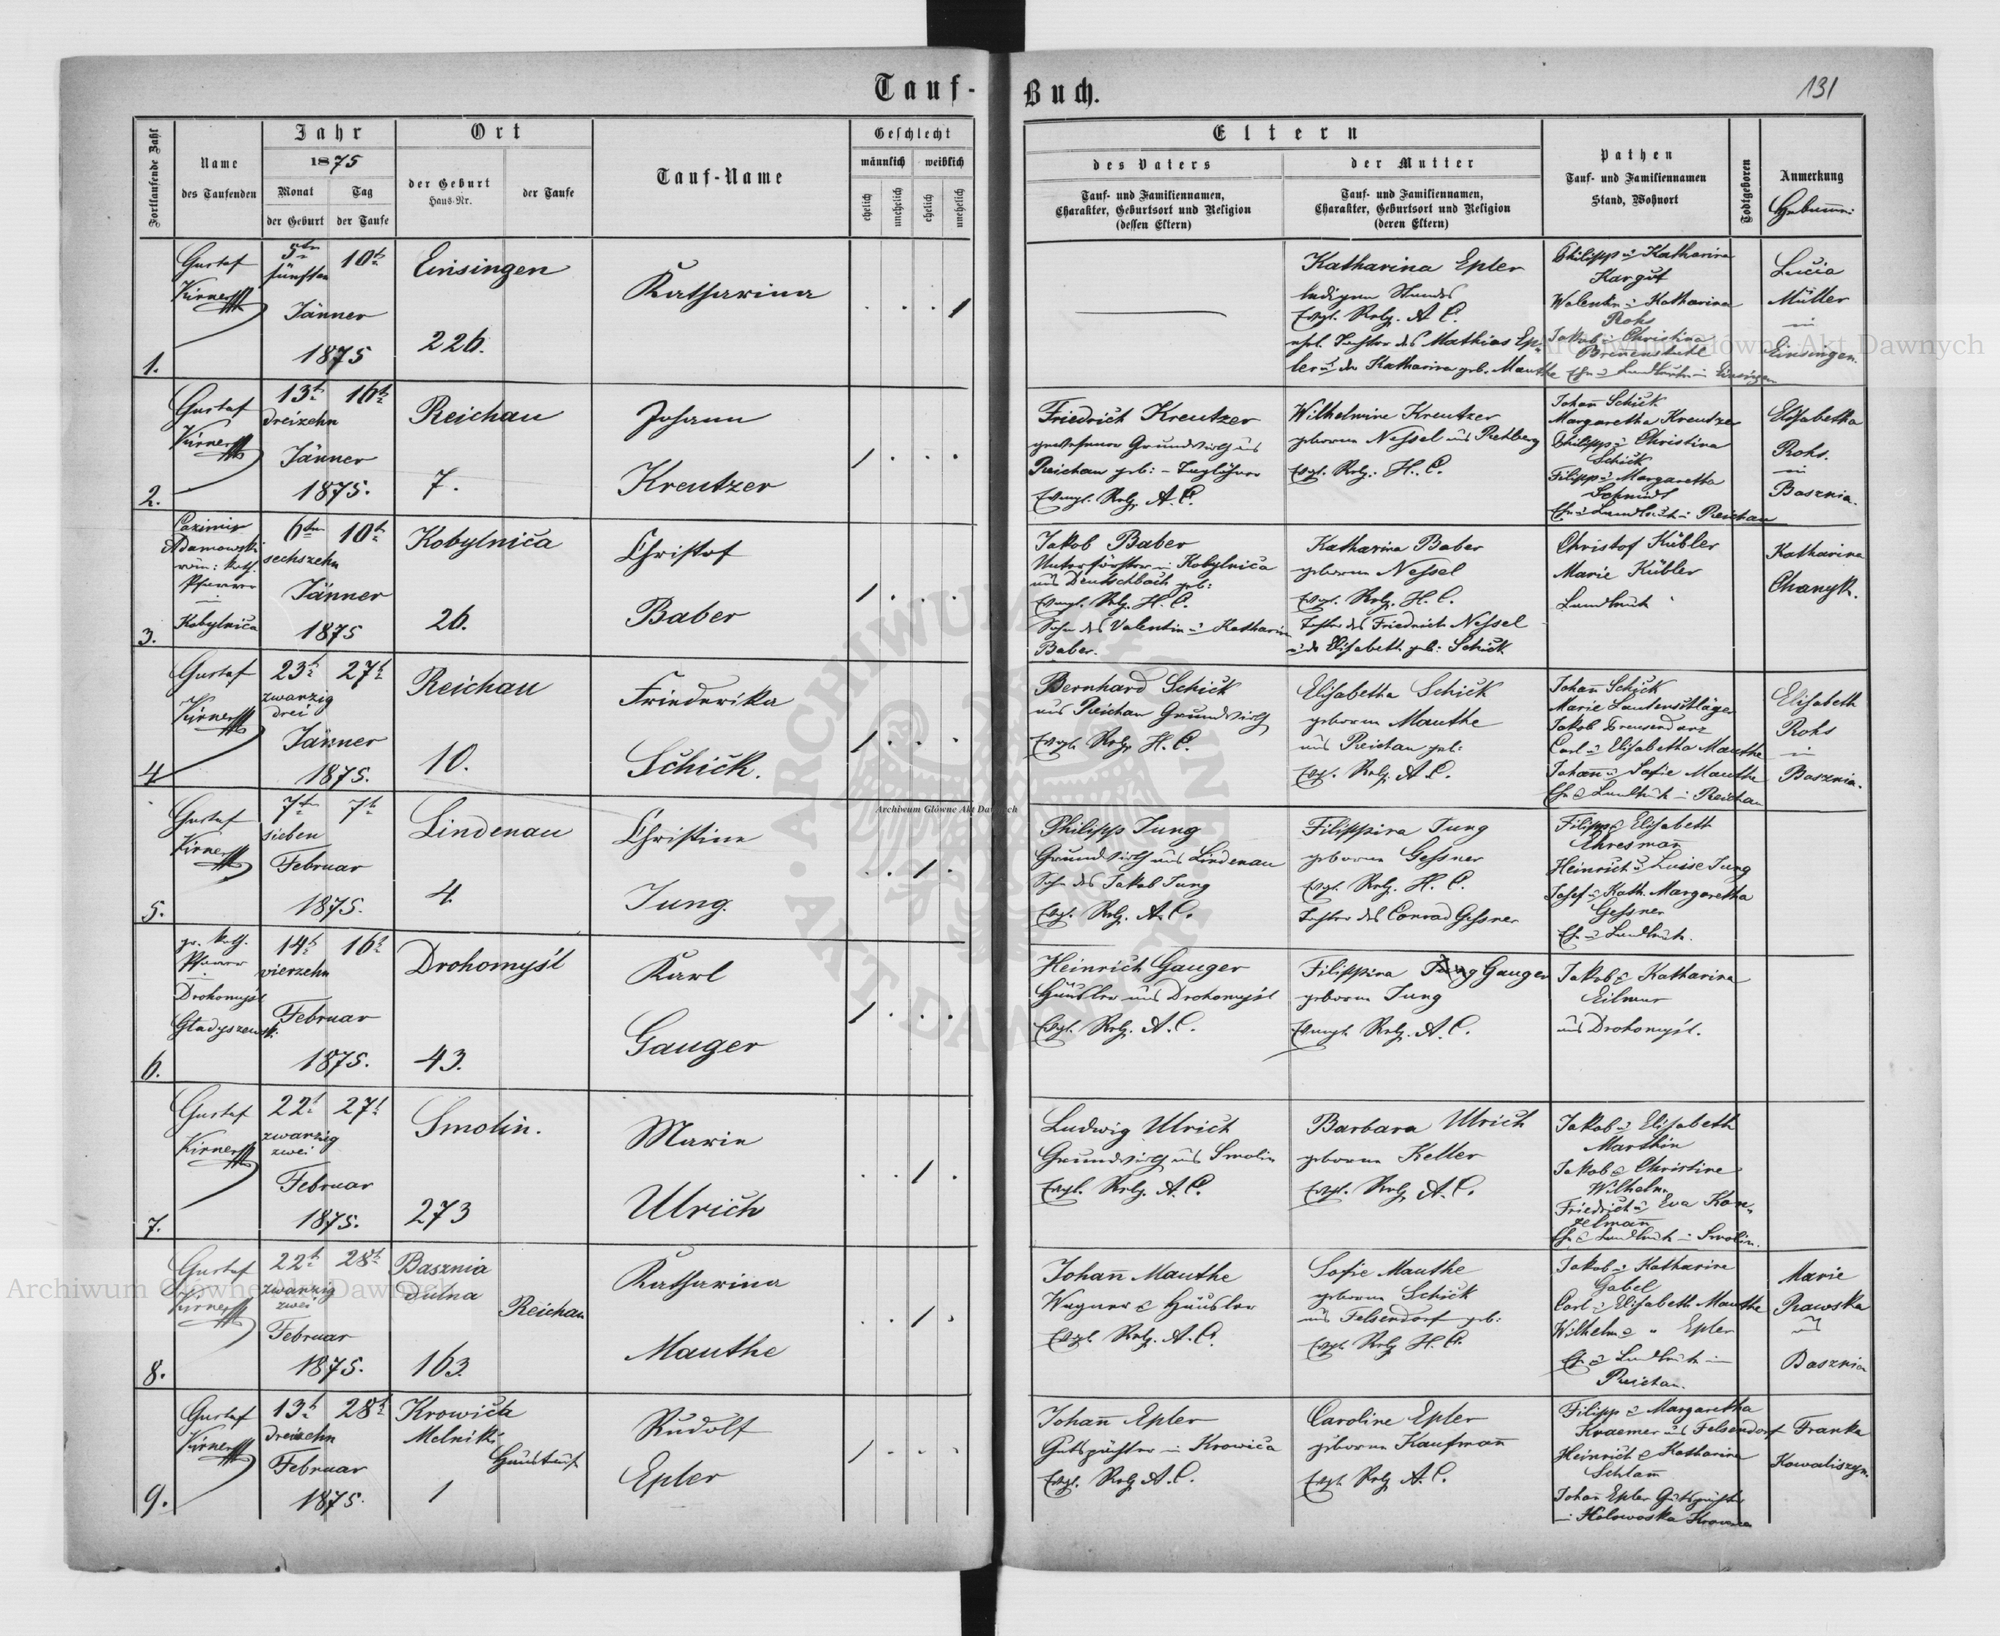 Tauf-Buch.
131
Fortlaufende Zahl
Name
des Taufenden
Jahr
1875
Monat
Tag
der Geburt
der Taufe
Ort
der Geburt
Haus-Nr.
der Taufe
Tauf-Name
Geschlecht
männlich
weiblich
ehelich
unehelich
ehelich
unehelich
Eltern
des Vaters
Tauf- und Familiennamen,
Charakter, Geburtsort und Religion
(dessen Eltern)
der Mutter
Tauf- und Familiennamen,
Charakter, Geburtsort und Religion
(deren Eltern)
Pathen
Tauf- und Familiennamen
Stand, Wohnort
Todtgeboren
Anmerkung
1.
Gustaf
Kirner
5
10
fünften
Jänner
1875
Einsingen
226.
Katharina
1
Katharina Epler
ledigen Standes
Evgl. Relg. A. C.
ehel. Tochter des Mathias Ep-
ler u der Katharina geb. Mauthe
Philipp u Katharina
Kargut
Katharina
Rohs
Jakob u Christina
Lucia
Müller
in
Einsingen.
2.
Gustaf
Kirner
13
16
dreizehn
Jänner
1875.
Reichau
7.
Johann
Kreutzer
1
Friedrich Kreutzer
gewesener Grundwirth aus
Reichau geb: - Taglöhner
Evngl. Relg. A. C.
Wilhelmine Kreutzer
geborene Nessel aus Rehberg
Evgl. Relg: H. C.
Johann Schick
Margaretha Kreutzer
Philipp u Christina
Schick
Filipp u Margaretha
Schmidt
Reichau
Elisabetha
Rohs.
in
Basznia.
3.
Adamowski
röm: kath.
Pfarrer
in
Kobylnica
6
10
sechszehn
Jänner
1875
Kobylnica
26.
Christof
Baber
1
Jakob Baber
Unterförster in Kobylnica
aus Deutschbach geb:
Evngl. Relg. H. C.
Sohn des Valentin u Katharina
Baber.
Katharina Baber
geborene Nessel
Evgl. Relg. H. C.
Tochter des Friedrich Nessel
u der Elisabeth geb: Schick
Christof Kübler
Marie Kübler
Landleute
Katharina
Chanyk.
4
Gustaf
Kirner
23
27
zwanzig
drei
Jänner
1875.
Reichau
10.
Friederika
Schick.
1
Bernhard Schick
aus Reichau Grundwirth
Evgl. Relg. H. C.
Elisabetha Schick
geborene Mauthe
aus Reichau geb:
Evg. Relg. A. C.
Johann Schick
Marie Lautenschläger
Carl u Elisabetha Mauthe
Johann u Sofie Mauthe
Reichau
Elisabeth
Rohs
in
Basznia.
5.
Gustaf
Kirner
7
7
sieben
Februar
1875.
Lindenau
4
Christine
Jung.
1
Philipp Jung
Grundwirth aus Lindenau
Sohn des Jakob Jung
Evg. Relg. A. C.
Filippina Jung
geborene Gessner
Evgl. Relg. H. C.
Tochter des Conrad Gessner
Filipp u Elisabeth
Ehresmann
Heinrich u Luise Jung
Josef u Kath. Margaretha
Gessner
6.
gr. kath.
Pfarrer
in
Drohomyśl
14
16
vierzehn
Februar
1875.
Drohomyśl
43.
Karl
Gauger
1
Heinrich Gauger
Häusler aus Drohomyśl
Evgl. Relg. A. C.
Filippina Jung Gauger
geborene Jung
Evngl. Relg. A. C.
Jakob u Katharina
Eilmer
aus Drohomyśl.
7.
Gustaf
Kirner
22
27
zwanzig
zwei
Februar
1875.
Smolin.
273
Marie
Ulrich
1
Ludwig Ulrich
Grundwirth aus Smolin
Evgl. Relg. A. C.
Barbara Ulrich
geborene Keller
Evgl. Relg A. C.
Jakob u Elisabeth
Marthin
Jakob u Christine
Wilhelm
Friedrich u Eva Kon-
zelmann
Smolin.
8.
Gustaf
Kirner
22
28
zwanzig
zwei
Februar
1875.
Basznia
dulna
163
Reichau
Katharina
Mauthe
1
Johann Mauthe
Wagner u Häusler
Evgl. Relg. A. C.
Sofie Mauthe
geborene Schick
aus Felsendorf geb:
Evgl. Relg H. C.
Jakob u Katharine
Gabel
Carl u Elisabeth Mauthe
Wilhelm u " Epler
Reichau.
Marie
Rawska
aus
Basznia
9.
Gustaf
Kirner
13
28
dreizehn
Februar
1875.
Krowica
1
Haustauf
Rudolf
Epler
1
Johann Epler
Gutspächter in Krowica
Evgl. Relg A. C.
Caroline Epler
geborene Kaufmann
Evgl. Relg A. C.
Filipp u Margaretha
Kraemer aus Felsendorf
Heinrich u Katharina
Johann Epler Gutspächter
Franka
Archiwum Główne Akt Dawnych
Archiwum Główne Akt Dawnych
Archiwum Główne Akt Dawnych
ARCHIWUM GŁÓWNE AKT DAWNYCH